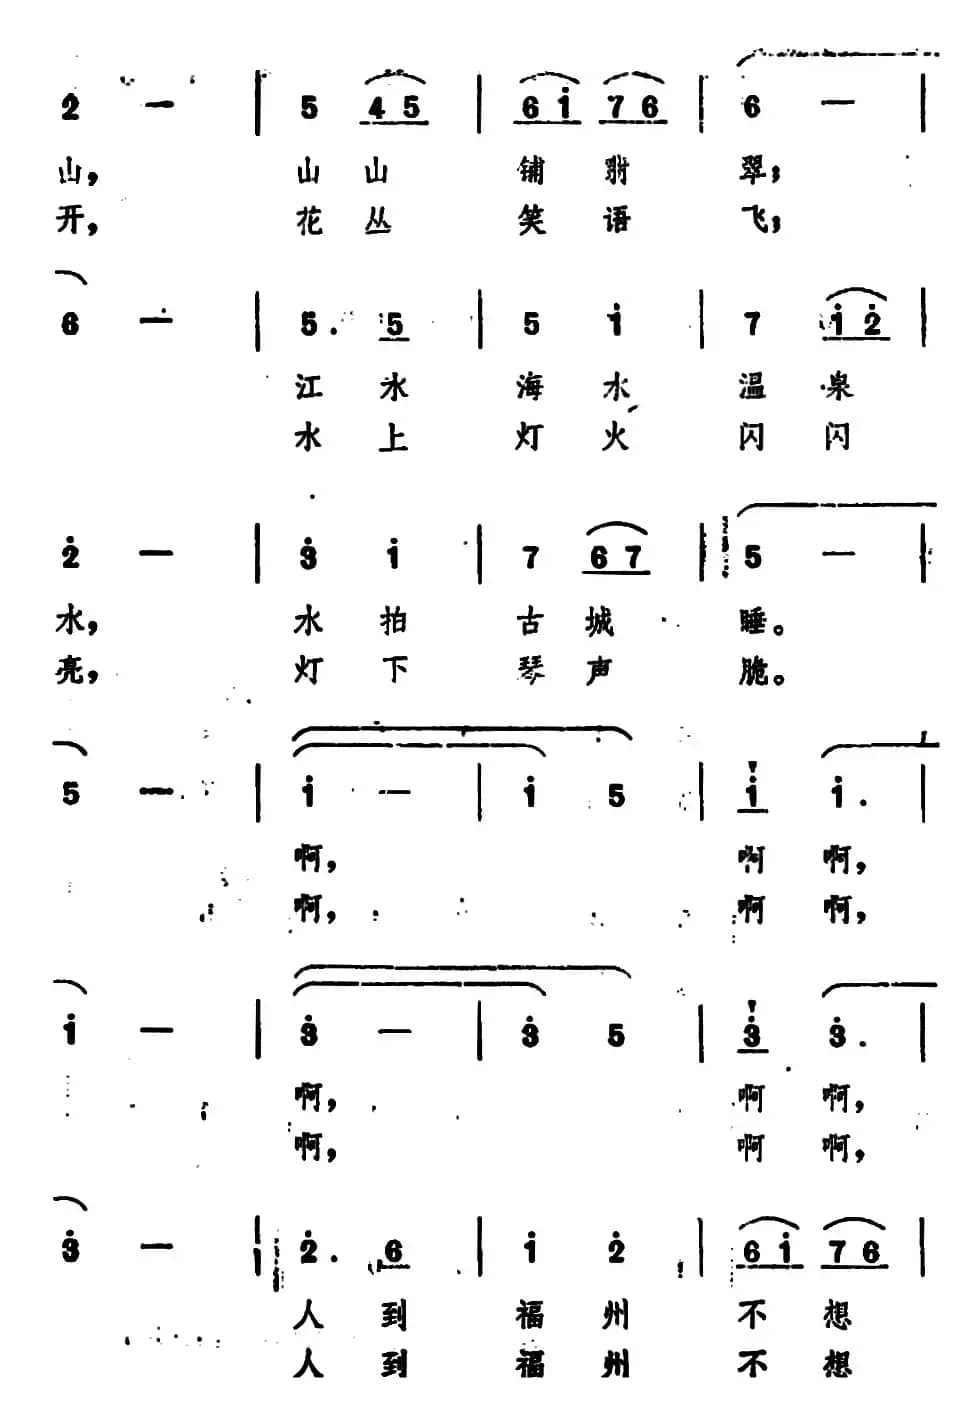 2 — | 5 4 5 | 6 i 7 6 | 6 — |
山， 山 山 铺 翡 翠；
开， 花 丛 笑 语 飞；
6 — | 5. 5 | 5 i | 7 i 2̇ |
江 水 海 水 温 泉
水 上 灯 火 闪 闪
2̇ — | 3̇ i | 7 6 7 | 5 — |
水， 水 拍 古 城 睡。
亮， 灯 下 琴 声 脆。
5 — | i — | i 5 | i i. |
啊， 啊 啊，
啊， 啊 啊，
i — | 3̇ — | 3̇ 5 | 3̇ 3̇. |
啊， 啊 啊，
啊， 啊 啊，
3̇ — | 2̇. 6 | i 2̇ | 6 i 7 6 |
人 到 福 州 不 想
人 到 福 州 不 想